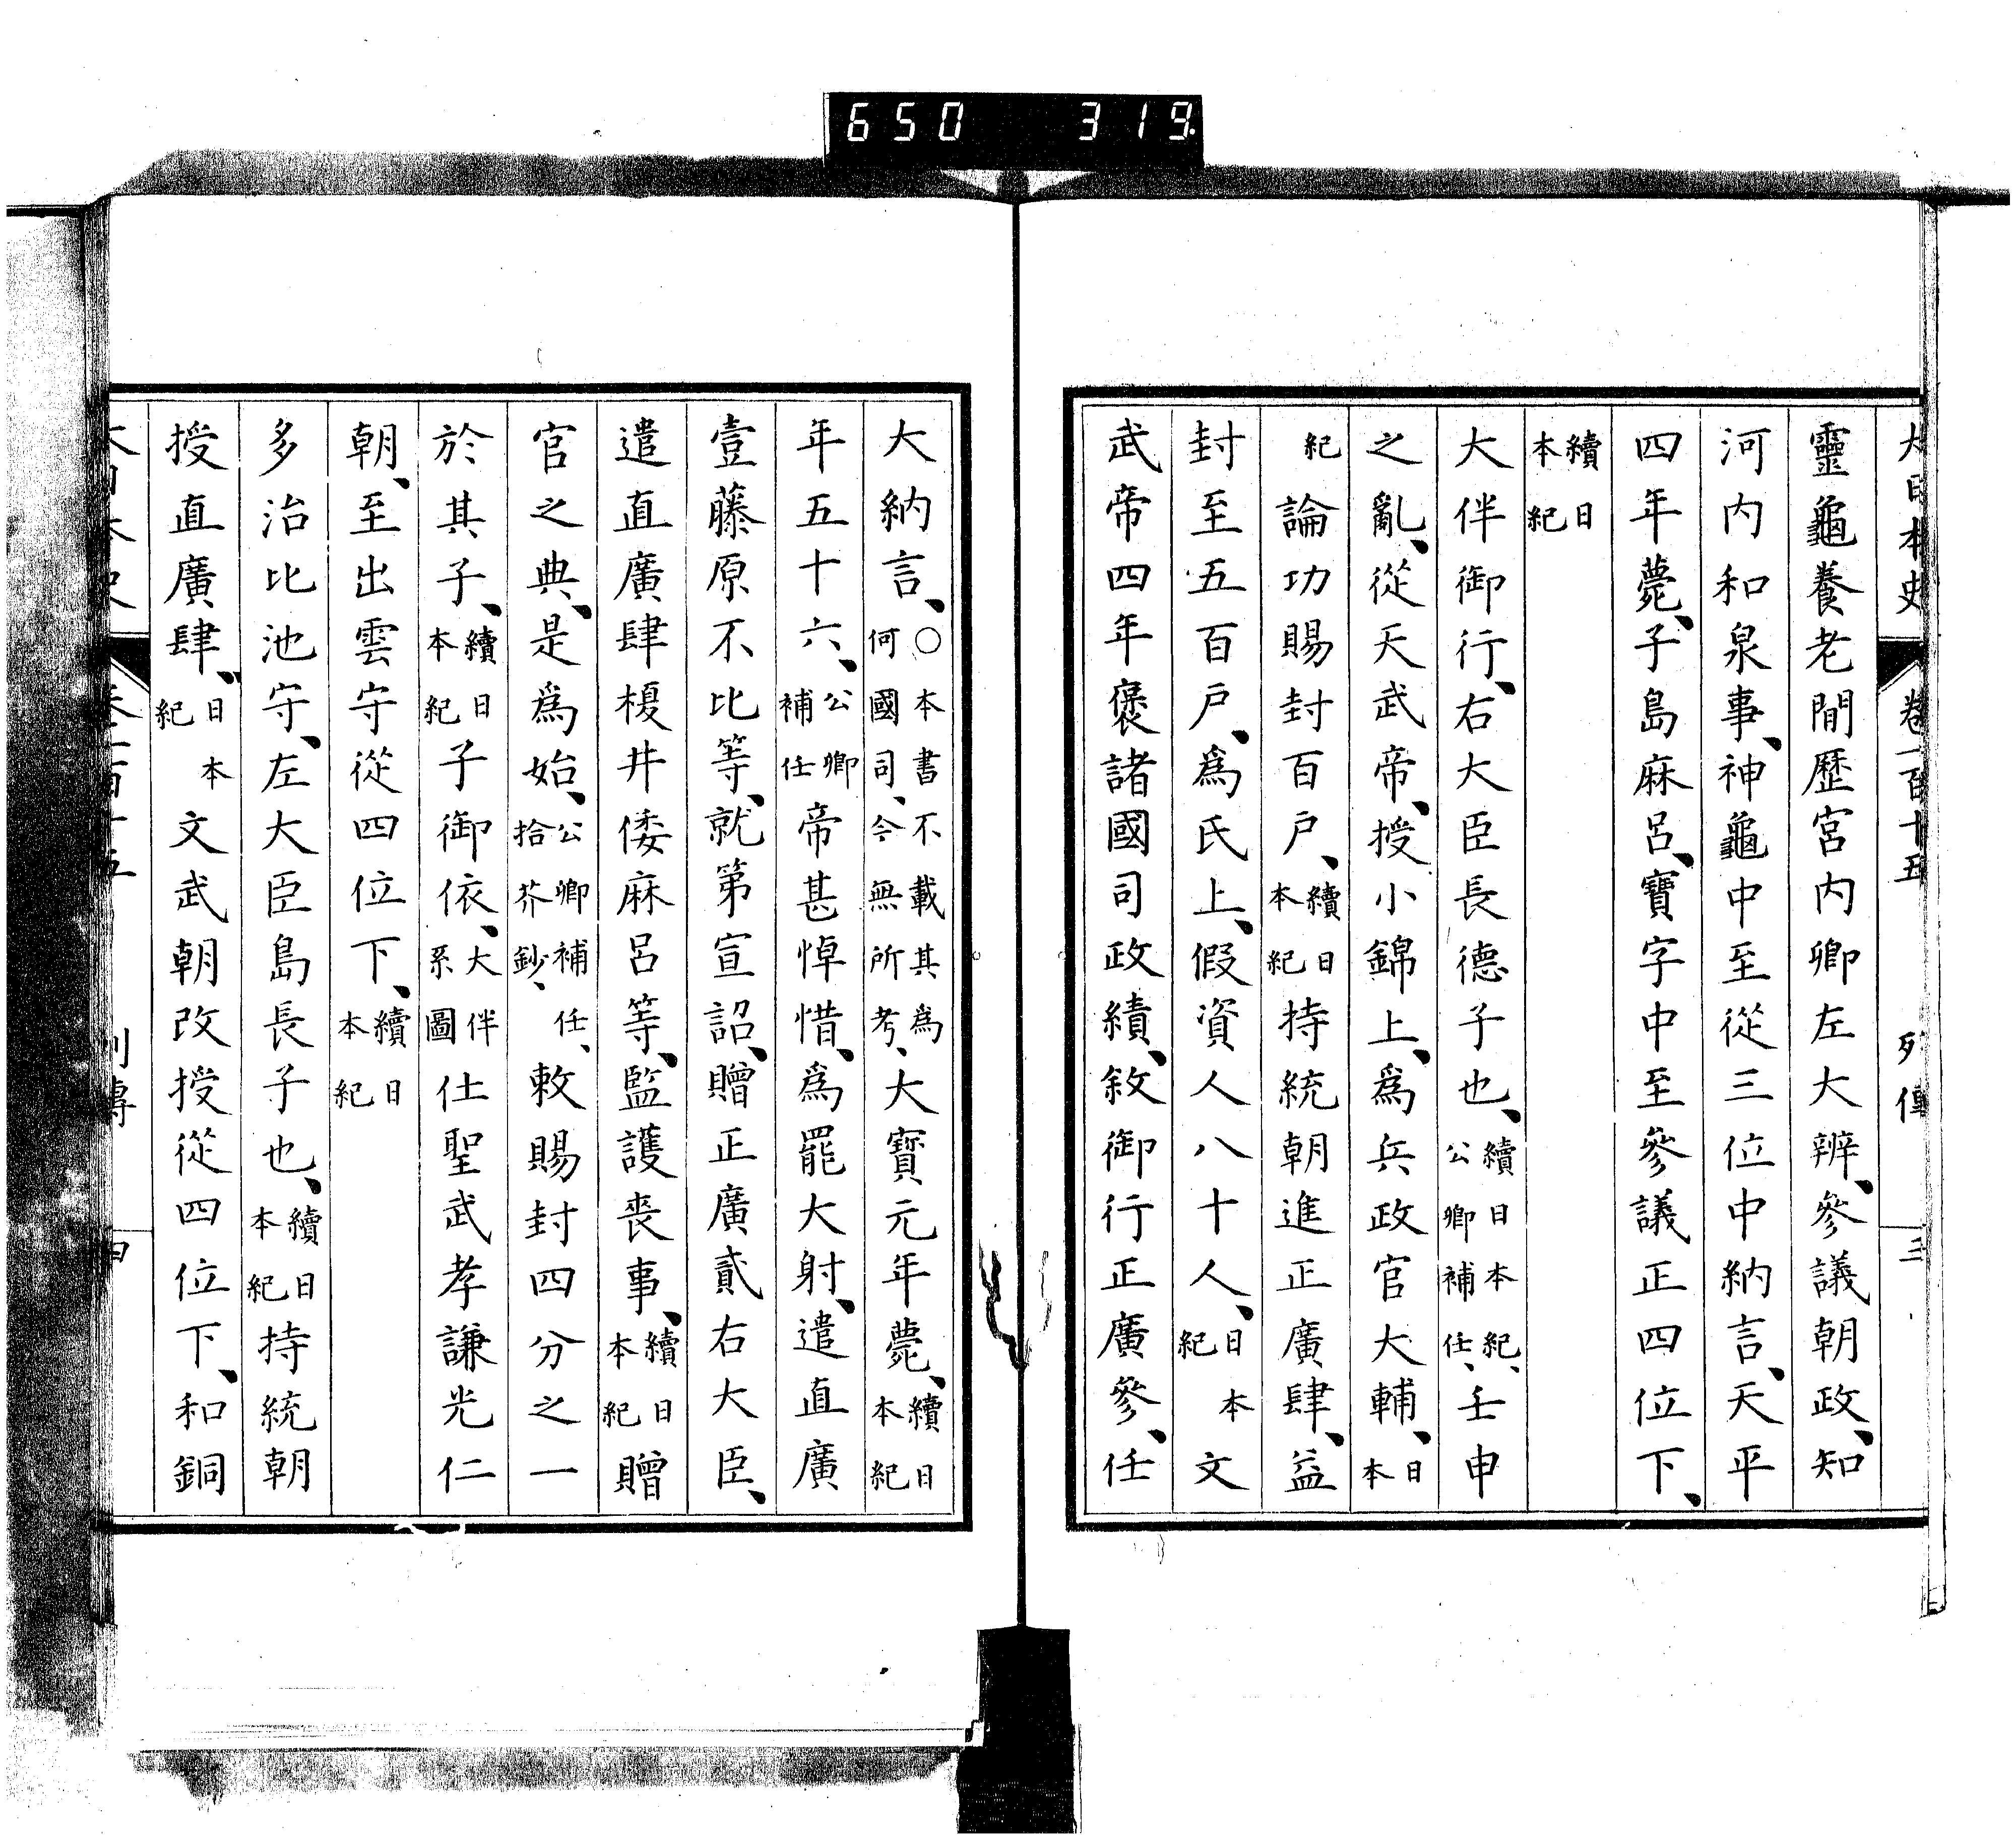 650 319.
大日本史 卷一百十五 列傳 三
靈龜養老間歷宮内卿左大辨、參議朝政、知
河内和泉事、神龜中至從三位中納言、天平
四年薨、子島麻呂、寶字中至參議正四位下、
續日本紀
大伴御行、右大臣長德子也、續日本紀、公卿補任、壬申
之亂、從天武帝、授小錦上、爲兵政官大輔、日本
紀論功賜封百戸、續日本紀持統朝進正廣肆、益
封至五百戸、爲氏上、假資人八十人、日本紀文
武帝四年褒諸國司政績、敘御行正廣參、任
大納言、○本書不載其爲何國司、今無所考、大寶元年薨、續日本紀
年五十六、公卿補任帝甚悼惜、爲罷大射、遣直廣
壹藤原不比等、就第宣詔、贈正廣貳右大臣、
遣直廣肆榎井倭麻呂等、監護喪事、續日本紀贈
官之典、是爲始、公卿補任、拾芥鈔、敕賜封四分之一
於其子、續日本紀子御依、大伴系圖仕聖武孝謙光仁
朝、至出雲守從四位下、續日本紀
多治比池守、左大臣島長子也、續日本紀持統朝
授直廣肆、日本紀文武朝改授從四位下、和銅